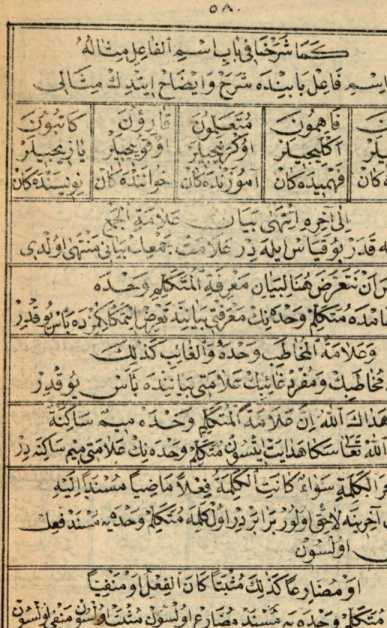 ٥٨٠
كَمَا شَرَحْنَا فِي بَابِ اِسْمِ الْفَاعِلِ مِثَالُهُ
اسم فَاعِل بَابِنْدَه شَرْح وَاِيضَاح اِيتْدِك مِثَالِي
فَاهِمُونَ مُتَعَلِّمُونَ قَارِؤُنَ كَاتِبُونَ
اكليجيلر اوكرنيجيلر اوقويجيلر يازيجيلر
فهميده كان اموزنده كان خواننده كان نويسنده كان
اِلَى آخِرِهِ اِنْتَهَى بَيَانُ عَلَامَةِ الْجَمْعِ
قدر بو قياس ايله در علامت جمعك بياني منتهى اولدى
اَنْ نَتَعَرَّضَ هُنَا لِبَيَانِ مَعْرِفَةِ الْمُتَكَلِّمِ وَحْدَهُ
متكلم وحده نك معرفتى بياننه تعرض ايتمكلكمزده بأس يوقدر
وَعَلَامَةُ الْمُخَاطَبِ وَحْدَهُ وَالْغَائِبِ كَذَلِكَ
مخاطبك ومفرد غائبك علامتى بياننده بأس يوقدر
هَدَاكَ اللهُ اِنَّ عَلَامَةَ الْمُتَكَلِّمِ وَحْدَهُ مِيمٌ سَاكِنَةٌ
الله تعالى سكا هدايت ايتسون متكلم وحده نك علامتى ميم ساكنه در
الْكَلِمَةِ سَوَاءٌ كَانَتِ الْكَلِمَةُ فِعْلًا مَاضِيًا مُسْنَدًا اِلَيْهِ
آخرينه لاحق اولور برابردر اول كلمه متكلم وحده يه مسند فعل
اولسون
اَوْ مُضَارِعًا كَذَلِكَ مُثْبَتًا كَانَ الْفِعْلُ اَوْ مَنْفِيًّا
متكلم وحده يه مسند مضارع اولسون مثبت اولسون منفى اولسون